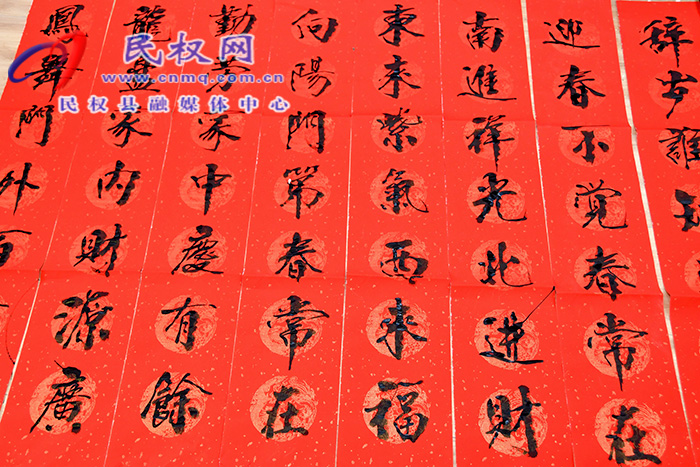 民权网
www.cnmq.com.cn
民权县融媒体中心
辞岁誰知
迎春不觉春常在
南進祥光北进財
東来紫氣西来福
向陽門第春常在
勤劳家中慶有餘
龍盘家内財源廣
鳳舞門外百